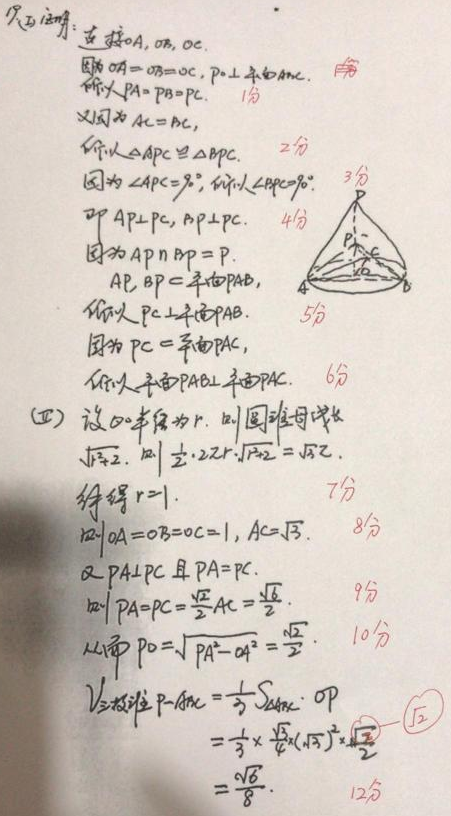 (I) 证明:
连接OA, OB, OC.
因为OA=OB=OC, PO⊥平面ABC.
所以PA=PB=PC. 1分
又因为 AC=BC,
所以△APC≌△BPC. 2分
因为∠APC=90°, 所以∠BPC=90°. 3分
即 AP⊥PC, BP⊥PC. 4分
因为AP∩BP=P.
AP, BP⊂平面PAB,
所以PC⊥平面PAB. 5分
因为PC⊂平面PAC,
所以平面PAB⊥平面PAC. 6分
D
P
C
O
A
B
(Ⅱ) 设⊙O半径为r. 则圆锥母线长
√r²+2. 则 1/2·2πr·√r²+2=√3π.
解得 r=1. 7分
则OA=OB=OC=1, AC=√3. 8分
又PA⊥PC且PA=PC.
则PA=PC=√2/2 AC=√6/2. 9分
从而PO=√PA²-OA²=√2/2. 10分
V三棱锥P-ABC=1/3 S△ABC·OP
=1/3×√3/4×(√3)²×√2/2
√2
=√6/8. 12分